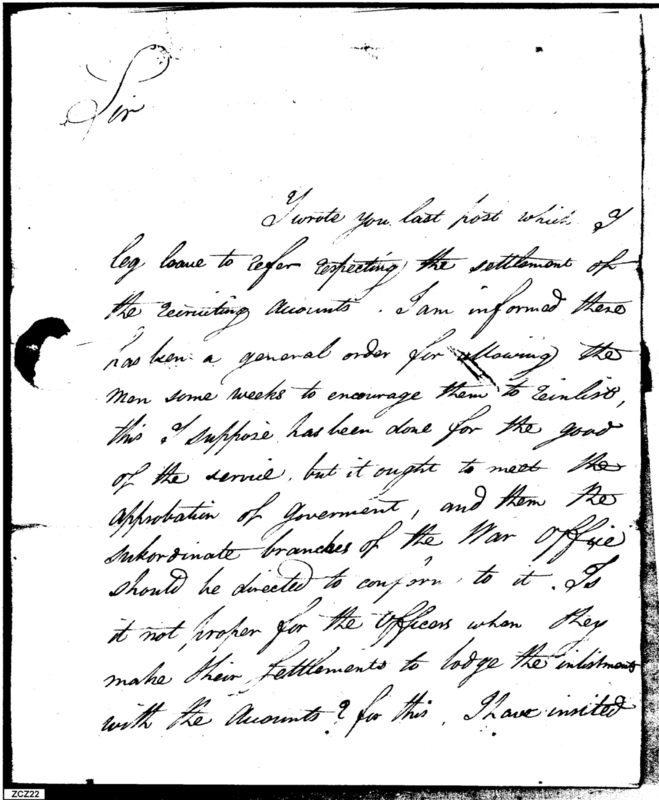 Sir
I wrote you last post which I
beg leave to refer respecting the settlement of
the recruiting accounts. I am informed there
has been a general order for allowing the
men some weeks to encourage them to reinlist,
this I suppose has been done for the good
of the service, but it ought to meet the
approbation of Goverment, and them the
subordinate branches of the War Office
should be directed to conform to it. Is
it not proper for the Officers when they
make their settlements to lodge the inlistments
with the accounts? for this, I have insisted
ZCZ22